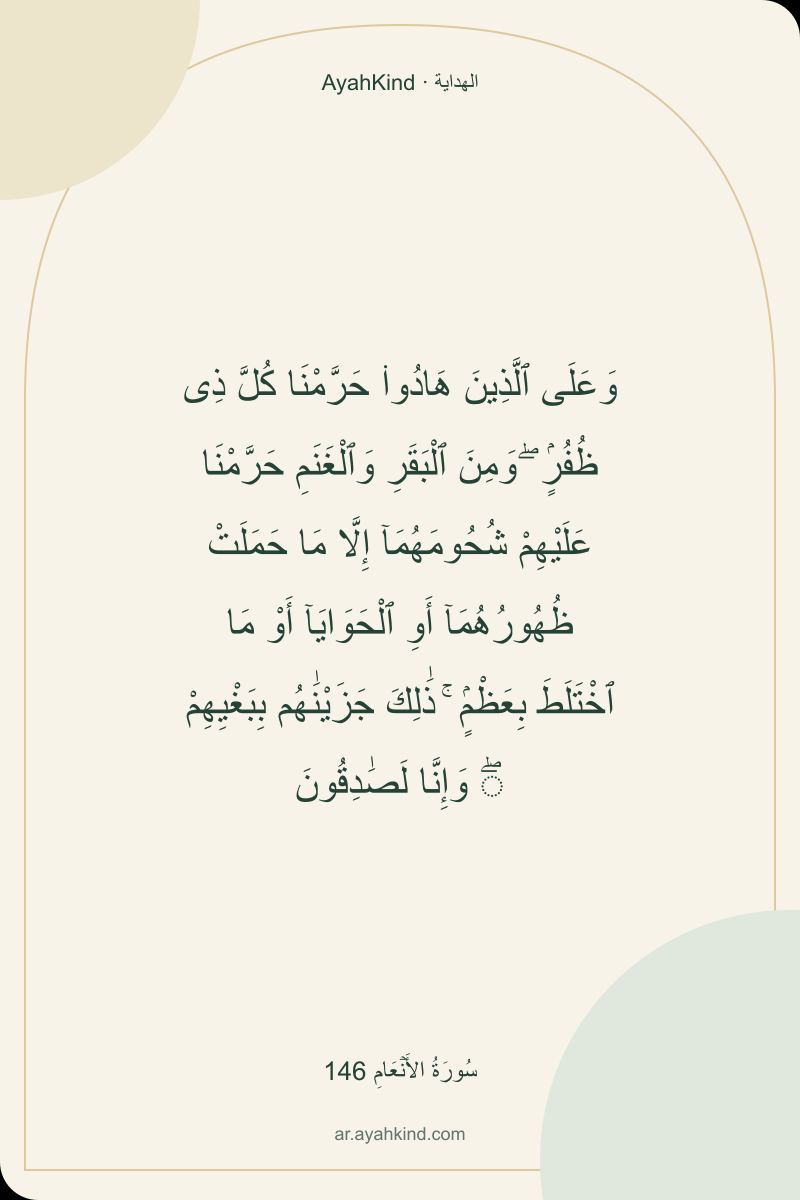 AyahKind · الهداية
وَعَلَى ٱلَّذِينَ هَادُوا۟ حَرَّمْنَا كُلَّ ذِى
ظُفُرٍۢ ۖ وَمِنَ ٱلْبَقَرِ وَٱلْغَنَمِ حَرَّمْنَا
عَلَيْهِمْ شُحُومَهُمَآ إِلَّا مَا حَمَلَتْ
ظُهُورُهُمَآ أَوِ ٱلْحَوَايَآ أَوْ مَا
ٱخْتَلَطَ بِعَظْمٍۢ ۚ ذَٰلِكَ جَزَيْنَٰهُم بِبَغْيِهِمْ
ۖ وَإِنَّا لَصَٰدِقُونَ
سُورَةُ الأَنۡعَامِ 146
ar.ayahkind.com